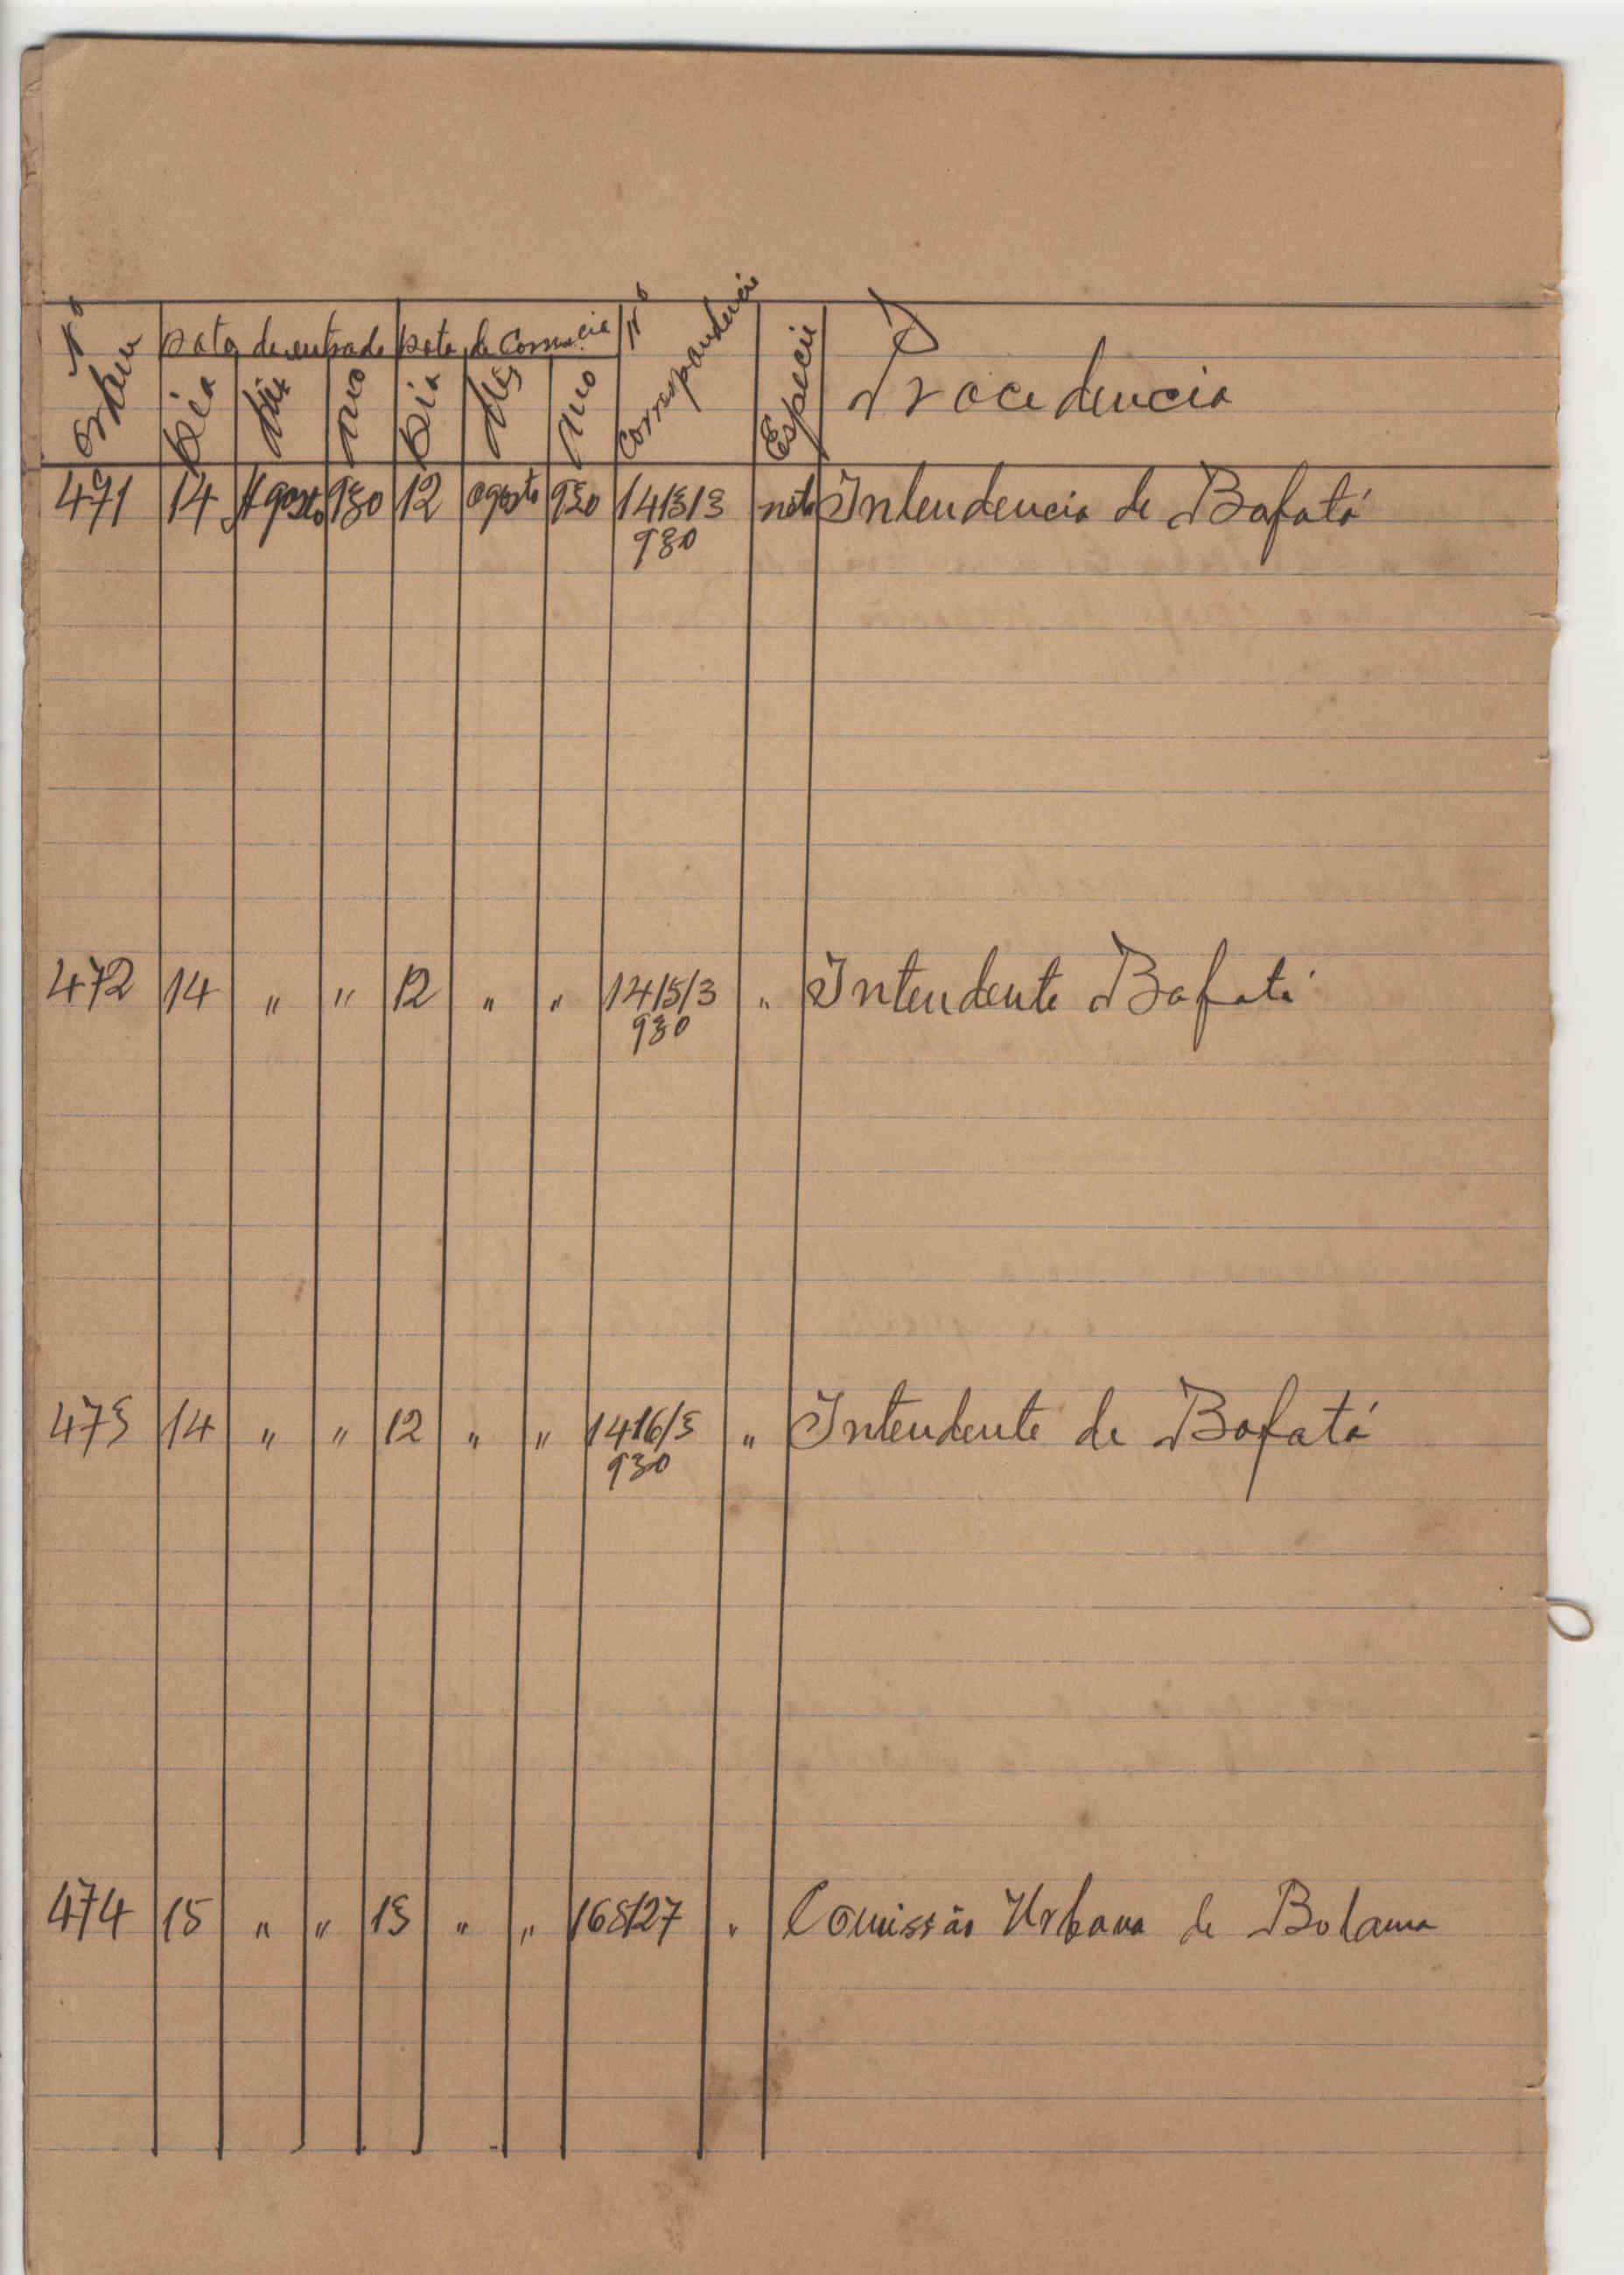 Nº Ordem Data de entrada Data de Corrn.cia Nº Correspondencia Especie Procedencia
Dia Mês Ano Dia Mês Ano
471 14 Agosto 930 12 agosto 930 1413/3 nota Intendencia de Bafatá
930
472 14 " " 12 " " 1415/3 " Intendente Bafatá
930
473 14 " " 12 " " 1416/3 " Intendente de Bafatá
930
474 15 " " 13 " " " Comissão Urbana de Bolama